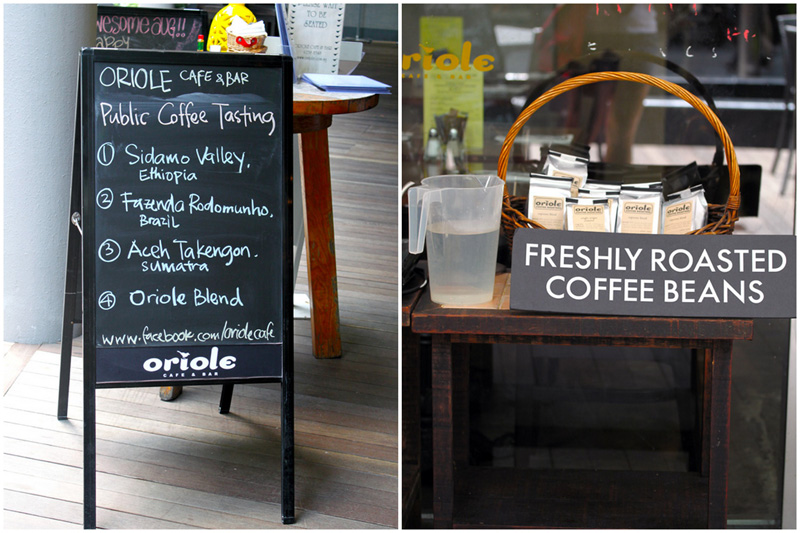 awesome aug!!!
ORIOLE CAFE & BAR
Public Coffee Tasting
① Sidamo Valley,
Ethiopia
② Fazenda Rodomunho,
Brazil
③ Aceh Takengon,
Sumatra
④ Oriole Blend
www.facebook.com/oriolecafe
oriole
CAFE & BAR
TO BE
SEATED
oriole
CAFE & BAR
oriole
oriole
oriole
oriole
FRESHLY ROASTED
COFFEE BEANS